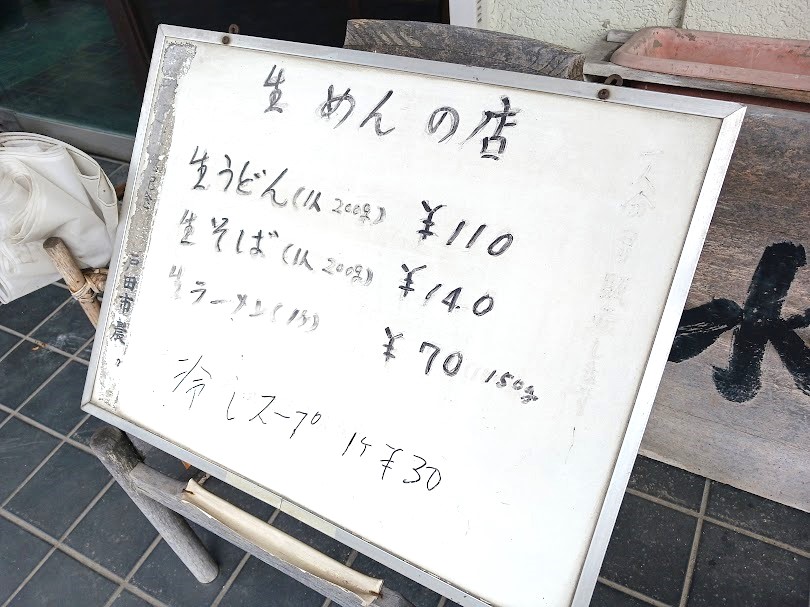 生めんの店
生うどん(1人 200g) ¥110
生そば(1人 200g) ¥140
生ラーメン(1玉) ¥70 150g
冷しスープ 1ケ ¥30
戸田市農
水